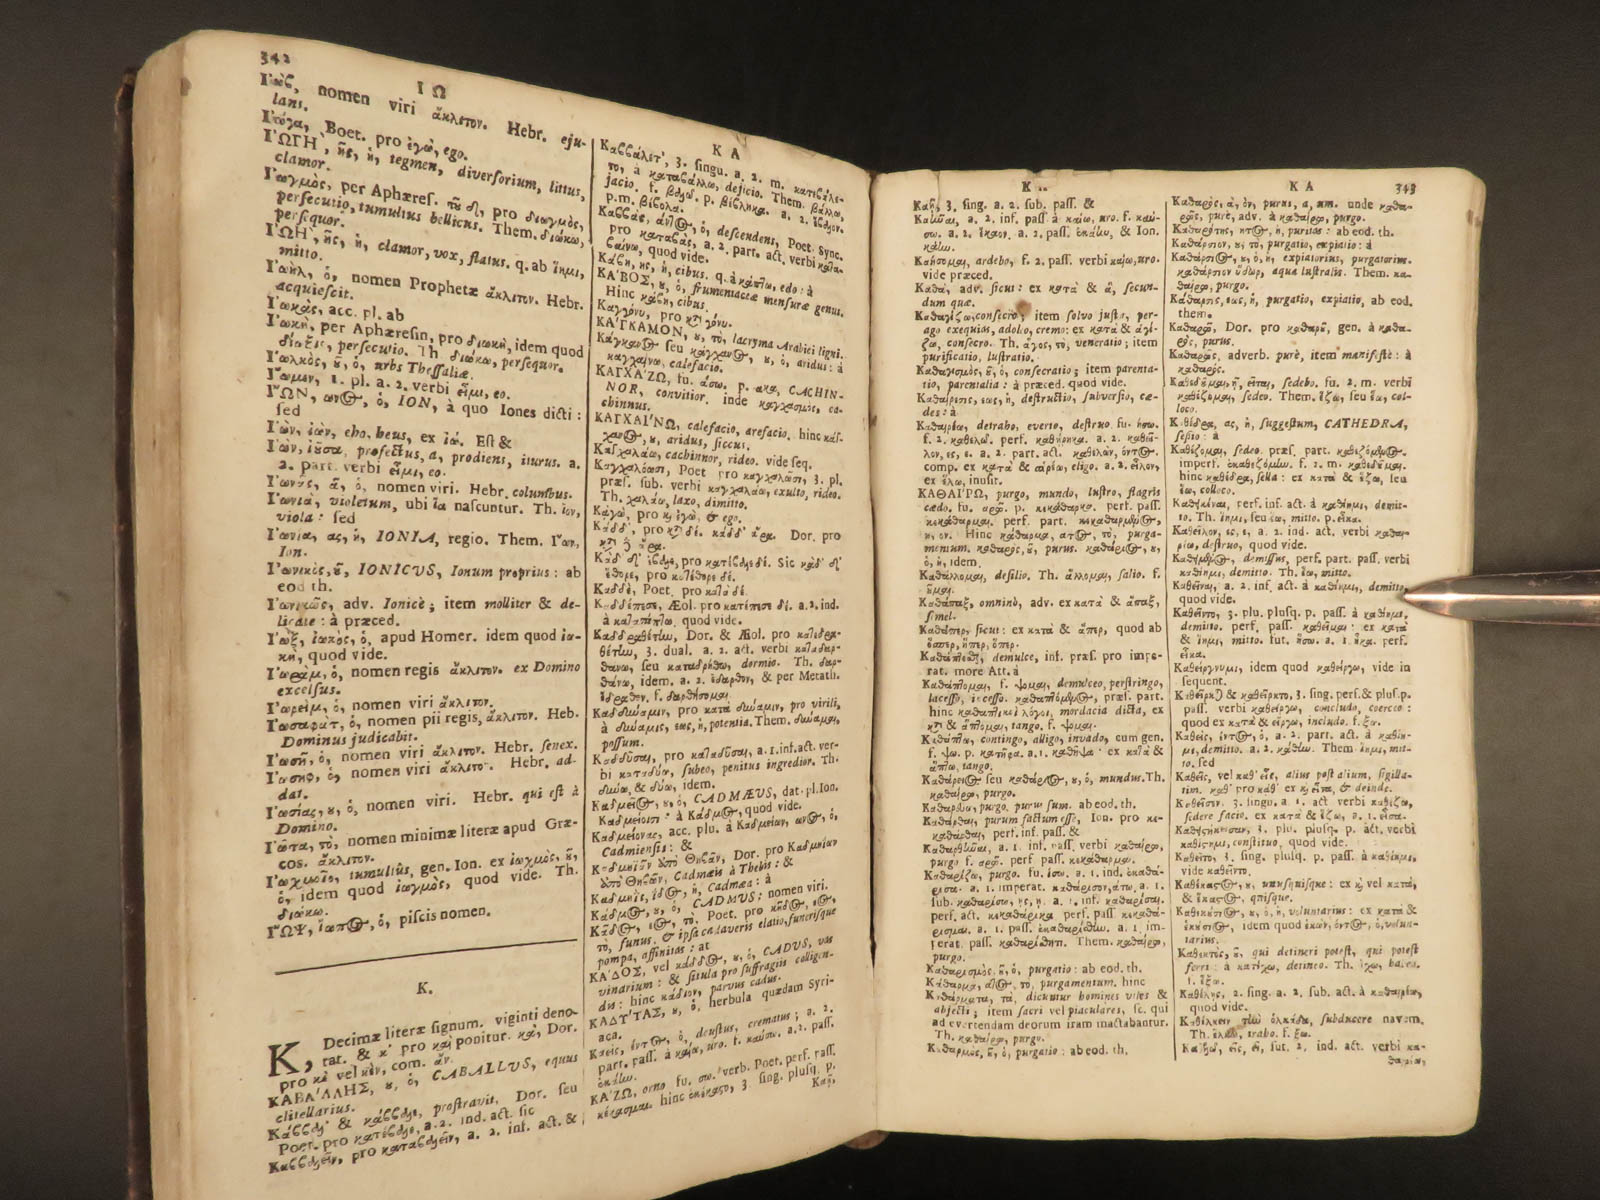 342
Ι Ω
nomen viri ἄκλιτον. Hebr. eju-
lans.
Poet. pro ἐγὼ, ego.
ἸΩΓΗ', ῆς, ἡ, tegmen, diversorium, littus,
clamor.
Ἰωγμὸς, per Aphæres. τοῦ δ, pro διωγμὸς,
persecutio, tumultus bellicus. Them. διώκω,
persequor.
ἸΩΗ', ῆς, ἡ, clamor, vox, flatus. q. ab ἵημι,
mitto.
Ἰωὴλ, ὁ, nomen Prophetæ ἄκλιτον. Hebr.
acquiescit.
Ἰωκὰς, acc. pl. ab
Ἰωκὴ, per Aphæresin, pro διωκὴ, idem quod
δίωξις, persecutio. Th. διώκω, persequor.
Ἰωλκὸς, οῦ, ὁ, urbs Thessaliæ.
1. pl. a. 2. verbi εἶμι, eo.
ἼΩΝ, ωνος, ὁ, ION, à quo Iones dicti:
sed
Ἰὼν, ἰών, eho, heus, ex ἰώ. Est &
Ἰὼν, ἰοῦσα, profectus, a, prodiens, iturus. a.
2. part. verbi εἶμι, eo.
Ἰωνᾶς, ᾶ, ὁ, nomen viri. Hebr. columbus.
Ἰωνιὰ, violetum, ubi ἴα nascuntur. Th. ἴον,
viola: sed
Ἰωνία, ας, ἡ, IONIA, regio. Them. Ἴων,
Ion.
Ἰωνικὸς, οῦ, IONICUS, Ionum proprius: ab
eod. th.
Ἰωνικῶς, adv. Ionicè; item molliter & de-
licatè: à præced.
Ἰωξ, ἰωκὸς, ὁ, apud Homer. idem quod ἰω-
κὴ, quod vide.
Ἰωρὰμ, ὁ, nomen regis ἄκλιτον. ex Domino
excelsus.
Ἰωρεὶμ, ὁ, nomen viri ἄκλιτον.
Ἰωσαφὰτ, ὁ, nomen pii regis, ἄκλιτον. Heb.
Dominus judicabit.
Ἰωσὴ, ὁ, nomen viri ἄκλιτον. Hebr. senex.
Ἰωσὴφ, ὁ, nomen viri ἄκλιτον. Hebr. ad-
dat.
Ἰωσίας, ου, ὁ, nomen viri. Hebr. qui est à
Domino.
Ἰῶτα, τὸ, nomen minimæ literæ apud Græ-
cos. ἄκλιτον.
Ἰωχμοῖο, tumultûs, gen. Ion. ex ἰωχμὸς, οῦ,
ὁ, idem quod ἰωγμὸς, quod vide. Th.
διώκω.
ἼΩΨ, ἰωπος, ὁ, piscis nomen.
K.
K, Decimæ literæ signum. viginti deno-
tat. & κ' pro καὶ ponitur. κὰ, Dor.
pro κὲ vel κὲν, com. ἄν.
ΚΑΒΑ'ΛΛΗΣ, ου, ὁ, CABALLUS, equus
clitellarius.
prostravit, Dor. seu
Poet. pro a. 2. ind. act. sic
a. 2. inf. act. &
Κ Α
3. singu. a. 2. m.
το, à καταβάλλω, dejicio. Them. βάλλω,
jacio. f. βαλῶ. p. βέβληκα. a. 2. ἔβαλον.
p. m. βέβολα.
ὁ, descendens, Poet. Sync.
pro καταβὰς, a. 2. part. act. verbi κατα-
βαίνω, quod vide.
Κάβη, ης, ἡ, cibus. q. à κάπτω, edo: à
ΚΑ'ΒΟΣ, ου, ὁ, frumentaceæ mensuræ genus.
Hinc κάβη, cibus.
Καγγόνυ, pro κατὰ γόνυ.
ΚΑ'ΓΚΑΜΟΝ, ου, τὸ, lacryma Arabici ligni.
seu καγχανος, ου, ὁ, aridus: à
καγχαίνω, calefacio.
ΚΑΓΧΑ'ΖΩ, fu. άσω. p. ακα, CACHIN-
NOR, convitior. inde καγχασμὸς, ca-
chinnus.
ΚΑΓΧΑΙ'ΝΩ, calefacio, arefacio. hinc κάγ-
χανος, ου, aridus, siccus.
Καγχαλάω, cachinnor, rideo. vide seq.
Καγχαλόωσι, Poet. pro καγχαλῶσι, 3. pl.
præs. sub. verbi καγχαλάω, exulto, rideo.
Th. χαλάω, laxo, dimitto.
Κἀγὼ, pro καὶ ἐγὼ, & ego.
Καδδ', pro κατὰ δέ. καδδ' ἄρα. Dor. pro
κατὰ δὲ ἄρα.
Κὰδ δ' ἔβαλε, pro κατέβαλε δέ. Sic κὰδ δ'
ἔθορε, pro κατέθορε δέ.
Καδδὲ, Poet. pro κατὰ δέ.
Καδδέπεσε, Æol. pro κατέπεσε δέ. a. 2. ind.
à καταπίπτω, quod vide.
Καδδραθέτην, Dor. & Æol. pro καταδρα-
θέτην, 3. dual. a. 2. act. verbi καταδαρ-
θάνω, seu καταδρήθω, dormio. Th. δαρ-
θάνω, idem. a. 2. ἔδαρθον, & per Metath.
ἔδραθον. f. δαρθήσομαι.
Καδδύναμιν, pro κατὰ δύναμιν, pro virili,
à δύναμις, εως, ἡ, potentia. Them. δύναμαι,
possum.
Καδδῦσαι, pro καταδῦσαι, a. 1. inf. act. ver-
bi καταδύω, subeo, penitus ingredior. Th.
δύνω, & δύω, idem.
Καδμεῖος, ου, ὁ, CADMÆUS, dat. pl. Ion.
Καδμείοισι: à Κάδμος, quod vide.
Καδμείωνας, acc. plu. à Καδμείων, ωνος, ὁ,
Cadmiensis: &
Dor. pro Καδμείων
ὑπὸ Θηβῶν, Cadmæis à Thebis: &
Καδμηῒς, ίδος, ἡ, Cadmæa: à
Κάδμος, ου, ὁ, CADMUS; nomen viri.
Κᾶδος, εος, τὸ, Poet. pro κῆδος, εος,
τὸ, funus, & ipsa cadaveris elatio, funerisque
pompa, affinitas: at
ΚΑ'ΔΟΣ, vel κάδδος, ου, ὁ, CADUS, vas
vinarium: & situla pro suffragiis colligen-
dis: hinc κάδιον, parvus cadus.
ΚΑΔΥ'ΤΑΣ, ου, ὁ, herbula quædam Syri-
aca.
Καεὶς, έντος, ὁ, deustus, crematus; a. 2.
part. pass. à καίω, uro. f. καύσω. a. 2. pass.
ἐκάην.
ΚΑ'ΖΩ, orno. fu. σω. verb. Poet. perf. pass.
κέκασμαι. hinc ἐκέκαστο, 3. sing. plusq. p.
Καῇ,
Κ Α
343
Καῇ, 3. sing. a. 2. sub. pass. &
Καῆναι, a. 2. inf. pass. à καίω, uro. f. καύ-
σω. a. 2. ἔκαον. a. 2. pass. ἐκάην, & Ion.
κάην.
Καήσομαι, ardebo, f. 2. pass. verbi καίω, uro.
vide præced.
Καθὰ, adv. sicut: ex κατὰ & ἃ, secun-
dum quæ.
Καθαγίζω, consecro; item solvo justa, per-
ago exequias, adoleo, cremo: ex κατὰ & ἁγί-
ζω, consecro. Th. ἅγος, τὸ, veneratio; item
purificatio, lustratio.
Καθαγισμὸς, οῦ, ὁ, consecratio; item parenta-
tio, parentalia: à præced. quod vide.
Καθαίρεσις, εως, ἡ, destructio, subversio, cæ-
des: à
Καθαιρέω, detrabo, everto, destruo. fu. ήσω.
f. 2. καθελῶ. perf. καθῄρηκα. a. 2. καθεῖ-
λον, ες, ε. a. 2. part. act. καθελὼν, όντος.
comp. ex κατὰ & αἱρέω, eligo. a. 2. εἷλον,
ex ἕλω, inusit.
ΚΑΘΑΙ'ΡΩ, purgo, mundo, lustro, flagris
cædo. fu. αρῶ. p. κεκάθαρκα. perf. pass.
κεκάθαρμαι. perf. part. κεκαθαρμένος,
η, ον. Hinc κάθαρμα, ατος, τὸ, purga-
mentum. καθαρὸς, οῦ, purus. καθάριος, ου,
ὁ, ἡ, idem.
Καθάλλομαι, desilio. Th. ἅλλομαι, salio. f.
οῦμαι.
Καθάπαξ, omninò, adv. ex κατὰ & ἅπαξ,
semel.
Καθάπερ, sicut: ex κατὰ & ἅπερ, quod ab
ὅσπερ, ἥπερ, ὅπερ.
demulce, inf. præs. pro impe-
rat. more Att. à
Καθάπτομαι, f. ψομαι, demulceo, perstringo,
lacesso, incesso. καθαπτόμενος, præs. part.
hinc καθαπτικοὶ λόγοι, mordacia dicta, ex
κατὰ & ἅπτομαι, tango. f. ψομαι.
Καθάπτω, contingo, alligo, invado, cum gen.
f. ψω. p. καθῆφα. a. 1. καθῆψα· ex κατὰ &
ἅπτω, tango.
seu καθάριος, ου, ὁ, mundus. Th.
καθαίρω, purgo.
purgo, purus sum. ab eod. th.
purum factum esse, Ion. pro κε-
καθάρθαι, perf. inf. pass. &
Καθαρθῆναι, a. 1. inf. pass. verbi καθαίρω,
purgo. f. αρῶ. perf. pass. κεκάθαρμαι.
Καθαρίζω, purgo. fu. ίσω. a. 1. ind. ἐκαθά-
ρισα. a. 1. imperat. καθάρισον, άτω, a. 1.
sub. καθαρίσω, ῃς, ῃ. a. 1. inf. καθαρίσαι.
perf. act. κεκαθάρικα. perf. pass. κεκαθά-
ρισμαι. a. 1. pass. ἐκαθαρίσθην. a. 1. im-
perat. pass. καθαρίσθητι. Them. καθαίρω,
purgo.
Καθαρισμὸς, οῦ, ὁ, purgatio: ab eod. th.
Κάθαρμα, ατος, τὸ, purgamentum. hinc
Καθάρματα, τὰ, dicuntur homines viles &
abjecti; item sacri vel piaculares, sc. qui
ad evertendam deorum iram mactabantur.
Th. καθαίρω, purgo.
Καθαρμὸς, οῦ, ὁ, purgatio: ab eod. th.
Κ Α
Καθαρὸς, ὰ, ὸν, purus, a, um. unde καθα-
ρῶς, purè, adv. à καθαίρω, purgo.
Καθαρότης, ητος, ἡ, puritas: ab eod. th.
Καθάρσιον, ου, τὸ, purgatio, expiatio: à
Καθάρσιος, ου, ὁ, ἡ, expiatorius, purgatorius.
καθάρσιον ὕδωρ, aqua lustralis. Them. κα-
θαίρω, purgo.
Κάθαρσις, εως, ἡ, purgatio, expiatio, ab eod.
them.
Καθαρῶ, Dor. pro καθαροῦ, gen. à καθα-
ρὸς, purus.
Καθαρῶς, adverb. purè, item manifestè: à
καθαρός.
Καθεδοῦμαι, ῇ, εῖται, sedebo. fu. 2. m. verbi
καθέζομαι, sedeo. Them. ἕζω, seu ἕω, col-
loco.
Καθέδρα, ας, ἡ, suggestum, CATHEDRA,
sessio: à
Καθέζομαι, sedeo. præs. part. καθεζόμενος.
imperf. ἐκαθεζόμην. f. 2. m. καθεδοῦμαι.
hinc καθέδρα, sella: ex κατὰ & ἕζω, seu
ἕω, colloco.
Καθεικέναι, perf. inf. act. à καθίημι, demit-
to. Th. ἵημι, seu ἕω, mitto. p. εἷκα.
Καθεῖλον, ες, ε, a. 2. ind. act. verbi καθαι-
ρέω, destruo, quod vide.
Καθειμένος, demissus, perf. part. pass. verbi
καθίημι, demitto. Th. ἕω, mitto.
Καθεῖναι, a. 2. inf. act. à καθίημι, demitto,
quod vide.
Καθεῖντο, 3. plu. plusq. p. pass. à καθίημι,
demitto. perf. pass. καθεῖμαι: ex κατὰ
& ἵημι, mitto. fut. ἥσω. a. 1. ἧκα. perf.
εἷκα.
Καθείργνυμι, idem quod καθείργω, vide in
sequent.
3. sing. perf. & plus. p.
pass. verbi καθείργω, concludo, coerceo:
quod ex κατὰ & εἵργω, includo. f. ξω.
Καθεὶς, έντος, ὁ, a. 2. part. act. à καθίη-
μι, demitto. a. 2. κάθην. Them. ἵημι, mit-
to. sed
Καθεῖς, vel καθ' εἷς, alius post alium, sigilla-
tim. καθ' pro κᾆθ' ex καὶ εἶτα, & deinde.
Καθεῖσεν, 3. singu. a. 1. act. verbi καθίζω,
sedere facio. ex κατὰ & ἵζω, a. 1. εἷσα.
3. plu. plusq. p. act. verbi
καθίστημι, constituo, quod vide.
Καθεῖτο, 3. sing. plusq. p. pass. à καθίημι,
vide καθεῖντο.
Καθέκαστος, η, unusquisque: ex κατ vel κατὰ,
& ἕκαστος, quisque.
Καθεκούσιος, ου, ὁ, ἡ, voluntarius: ex κατὰ &
ἑκούσιος, idem quod ἑκὼν, όντος, ὁ, volun-
tarius.
Καθεκτὸς, οῦ, qui detineri potest, qui potest
ferri: à κατέχω, detineo. Th. ἔχω, habeo.
f. ἕξω.
Καθέλῃς, 2. sing. a. 2. sub. act. à καθαιρέω,
quod vide.
Καθέλκειν τὴν ὁλκάδα, subducere navem.
Th. ἕλκω, traho. f. ξω.
Καθελῶ, εῖς, εῖ, fut. 2. ind. act. verbi κα-
θαιρέω,